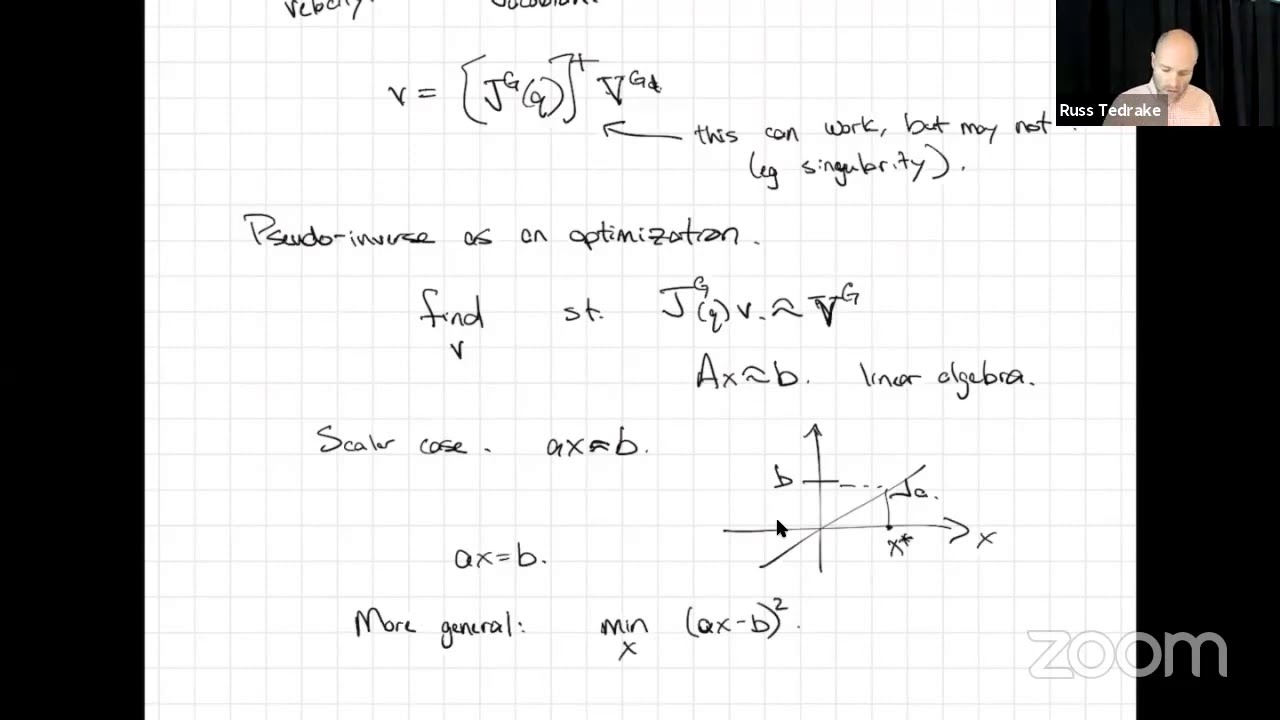 velocity. Jacobian.
v = [J^G(q)]^+ V^{Gd}
Russ Tedrake
this can work, but may not.
(eg singularity).
Pseudo-inverse as an optimization.
find v st. J^G(q) v. ≈ V^G
Ax ≈ b. linear algebra.
Scalar case. ax ≈ b.
b
a.
x* x
ax = b.
More general: min x (ax-b)^2.
zoom